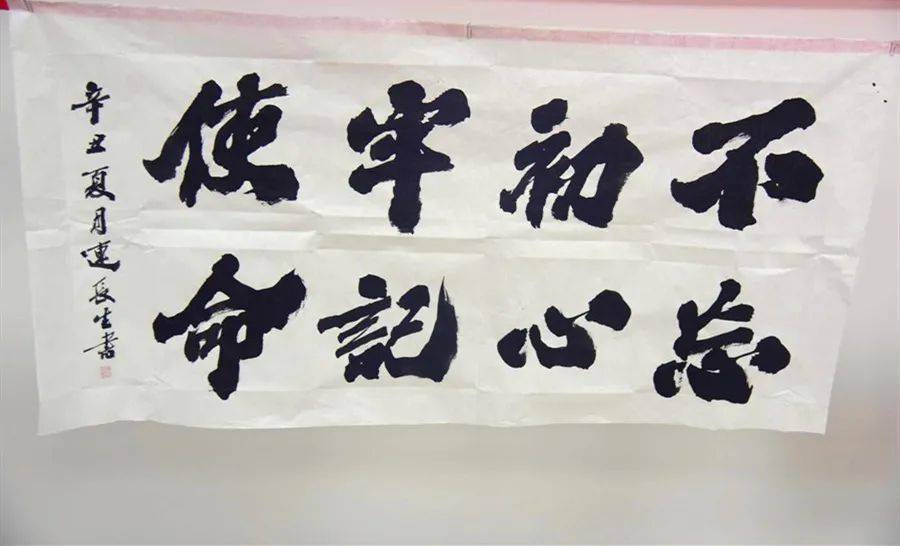 不忘
初心
牢記
使命
辛丑夏月連長生書